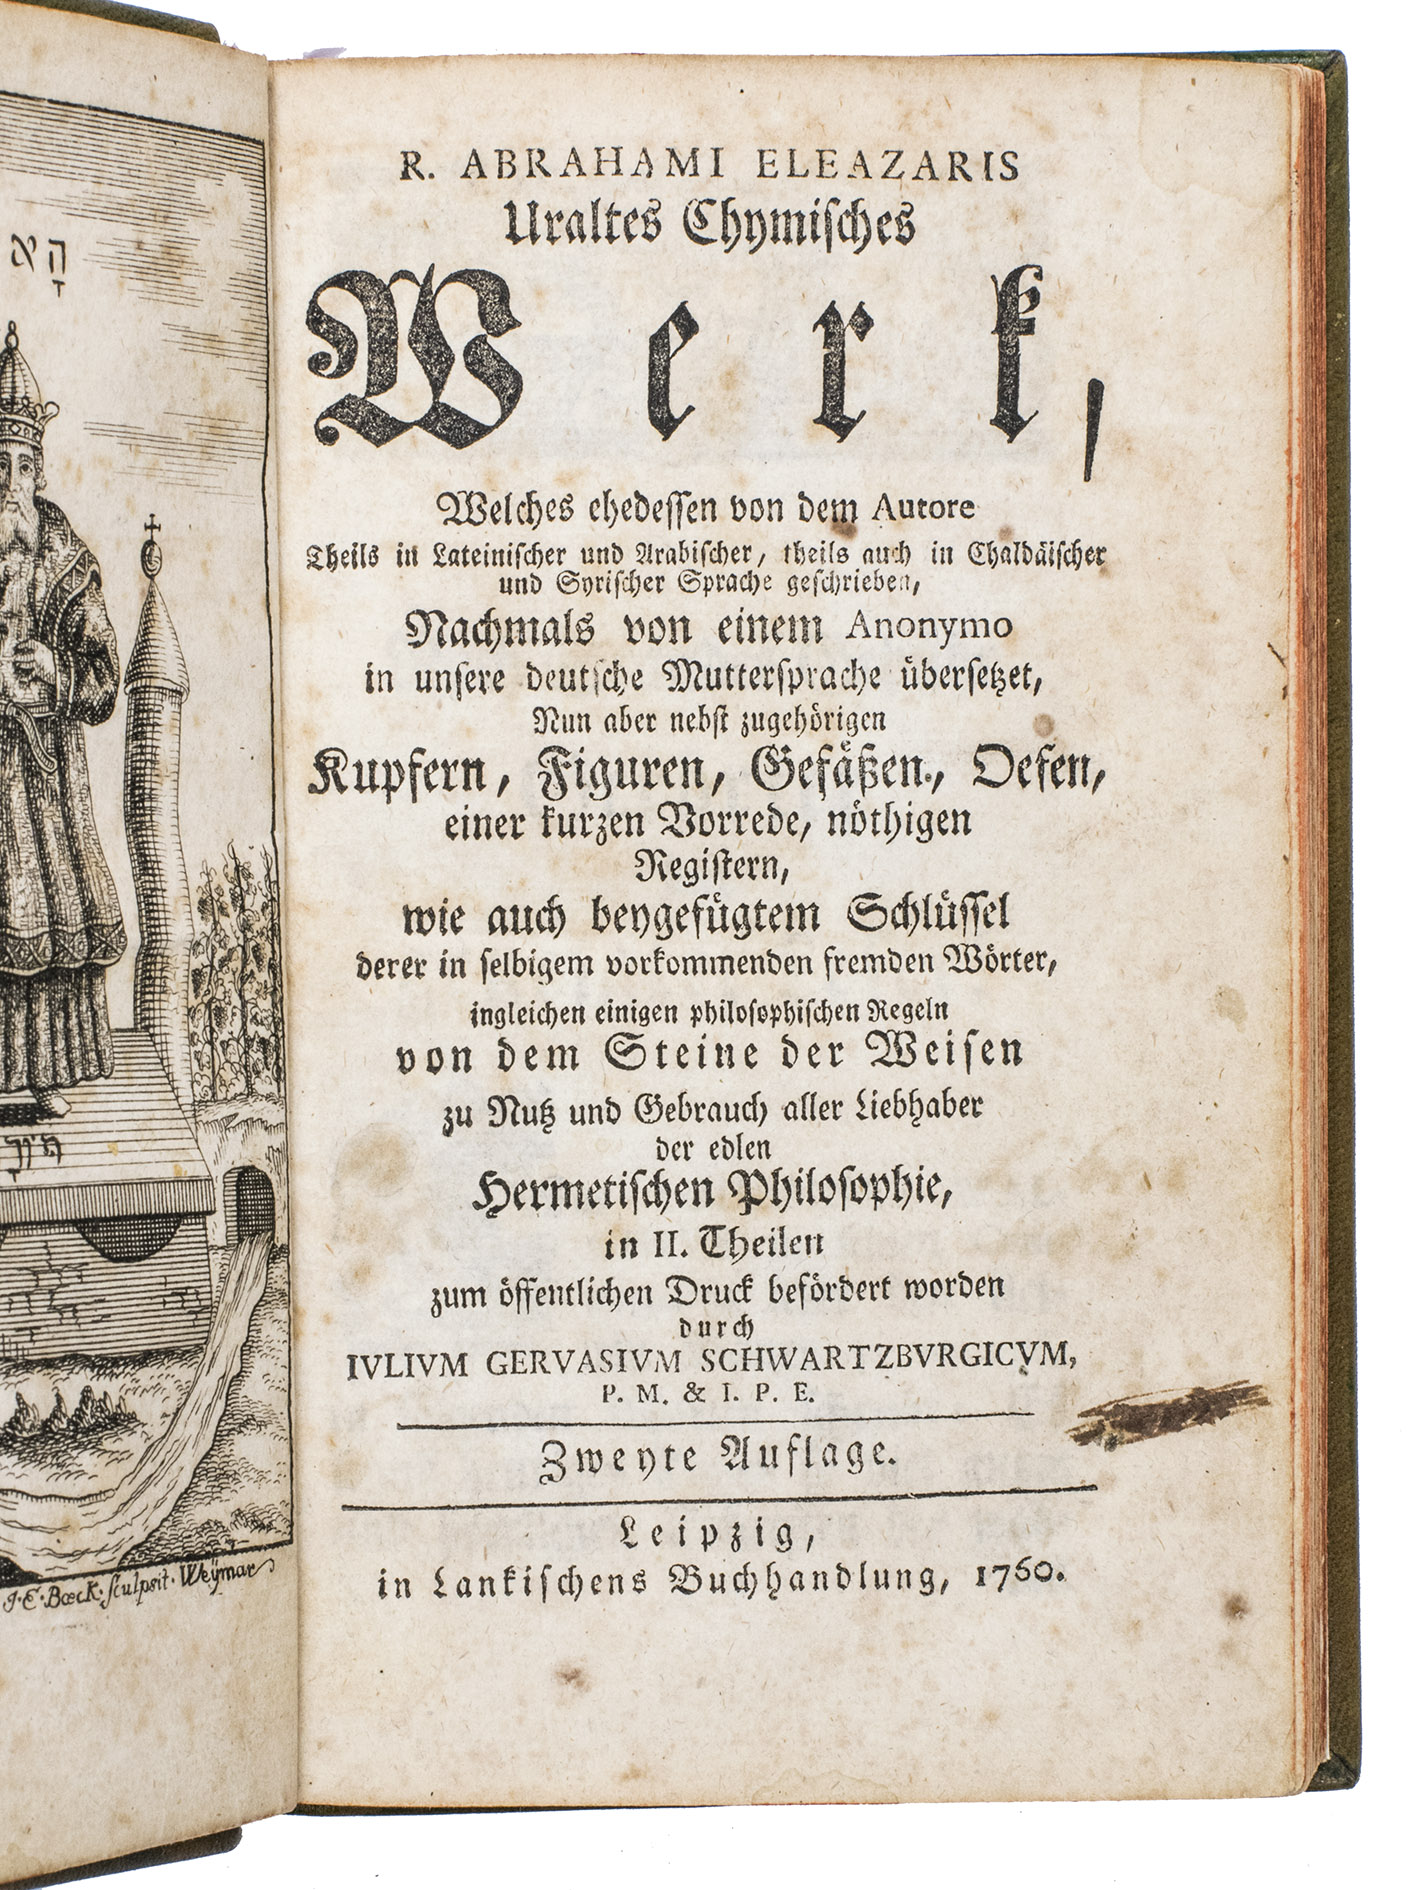 הָא
תיך
J. E. Boeck. sculpsit. Weÿmar
R. ABRAHAMI ELEAZARIS
Uraltes Chymisches
Werk,
Welches ehedessen von dem Autore
Theils in Lateinischer und Arabischer, theils auch in Chaldäischer
und Syrischer Sprache geschrieben,
Nachmals von einem Anonymo
in unsere deutsche Muttersprache übersetzet,
Nun aber nebst zugehörigen
Kupfern, Figuren, Gefäßen, Oefen,
einer kurzen Vorrede, nöthigen
Registern,
wie auch beygefügtem Schlüssel
derer in selbigem vorkommenden fremden Wörter,
ingleichen einigen philosophischen Regeln
von dem Steine der Weisen
zu Nutz und Gebrauch aller Liebhaber
der edlen
Hermetischen Philosophie,
in II. Theilen
zum öffentlichen Druck befördert worden
durch
IVLIVM GERVASIVM SCHWARTZBVRGICVM,
P. M. & I. P. E.
Zweyte Auflage.
Leipzig,
in Lankischens Buchhandlung, 1760.